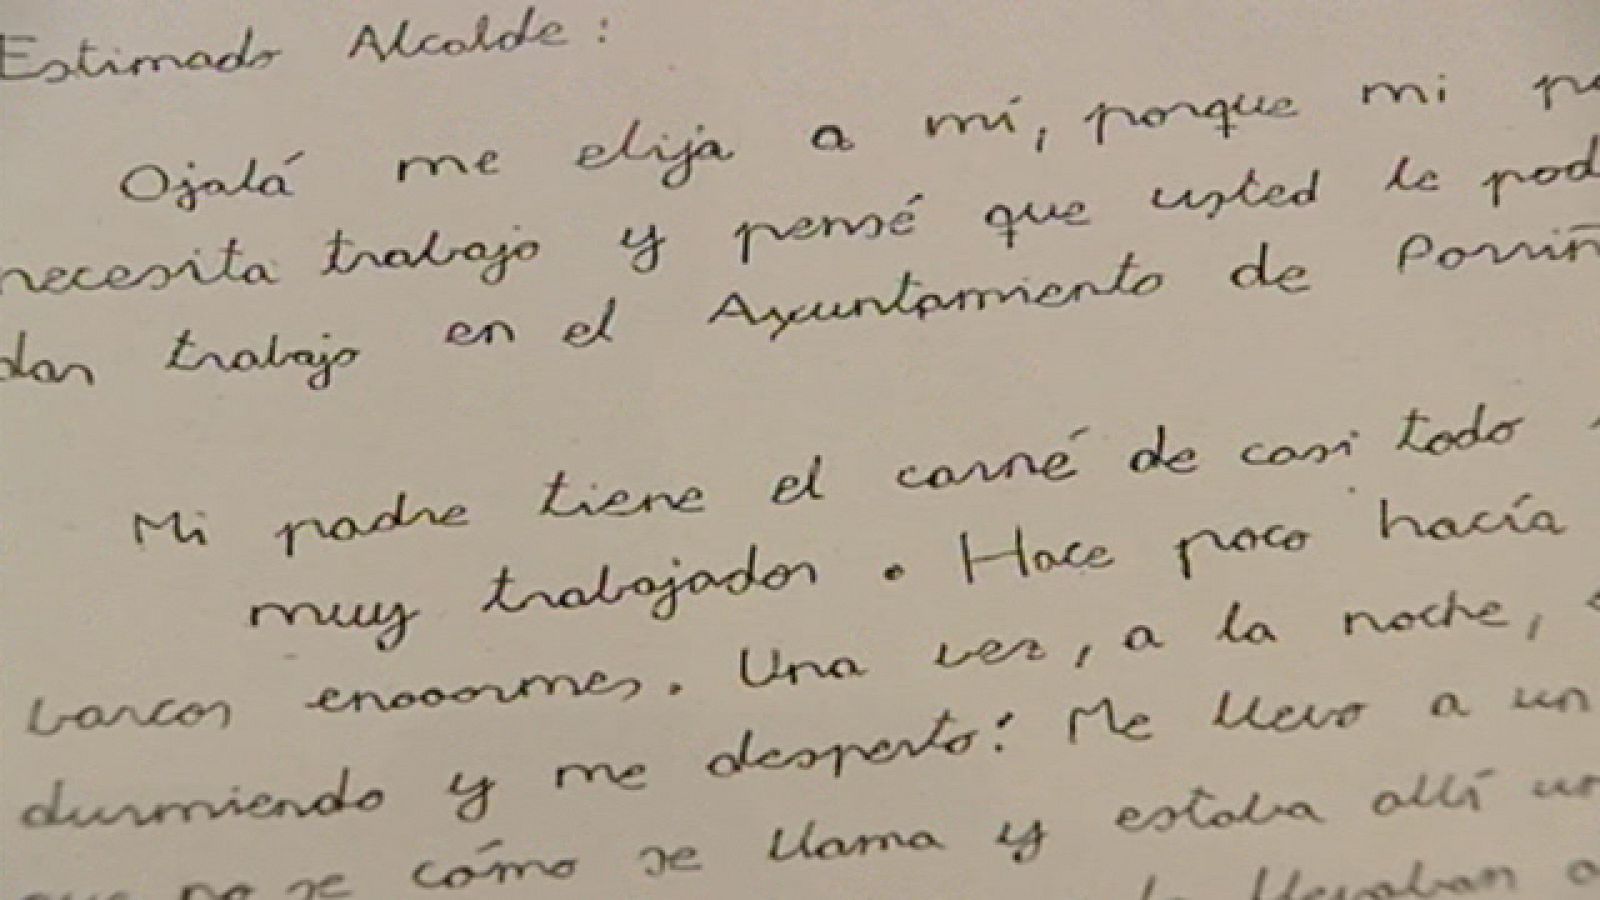 Estimado Alcalde:
Ojalá me elija a mí, porque mi
necesita trabajo y pensé que usted le pod
dar trabajo en el Ayuntamiento de Porriñ
Mi padre tiene el carné de casi todo
muy trabajador. Hace poco hacía
barcos enooormes. Una vez, a la noche,
durmiendo y me desperto! Me llevo a un
que no se cómo se llama y estaba allí un
llevaban a